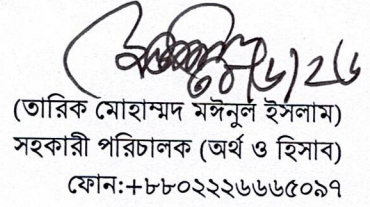 (তারিক মোহাম্মদ মঈনুল ইসলাম)
সহকারী পরিচালক (অর্থ ও হিসাব)
ফোন:+৮৮০২২২৬৬৬৫০৯৭